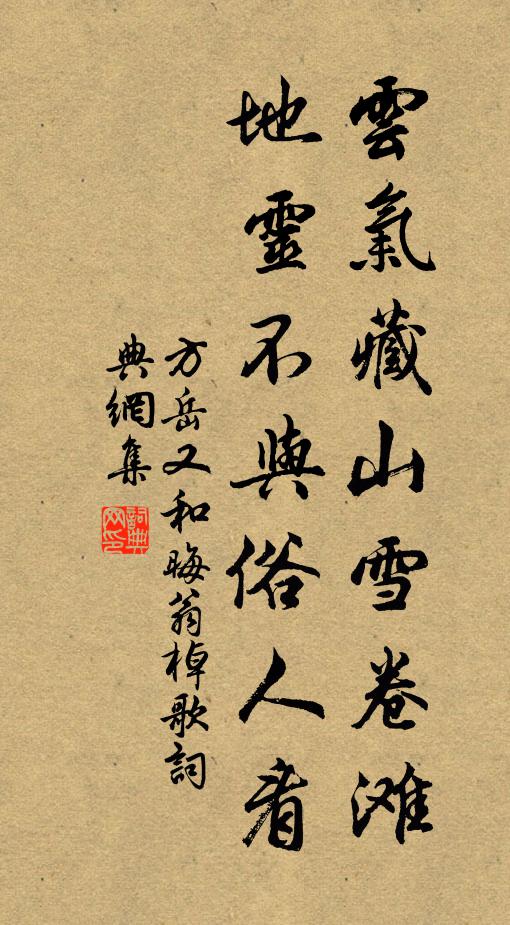 雲氣藏山雪卷滩
地靈不與俗人看
方岳又和晦翁棹歌詞
典網集
詞典
网印